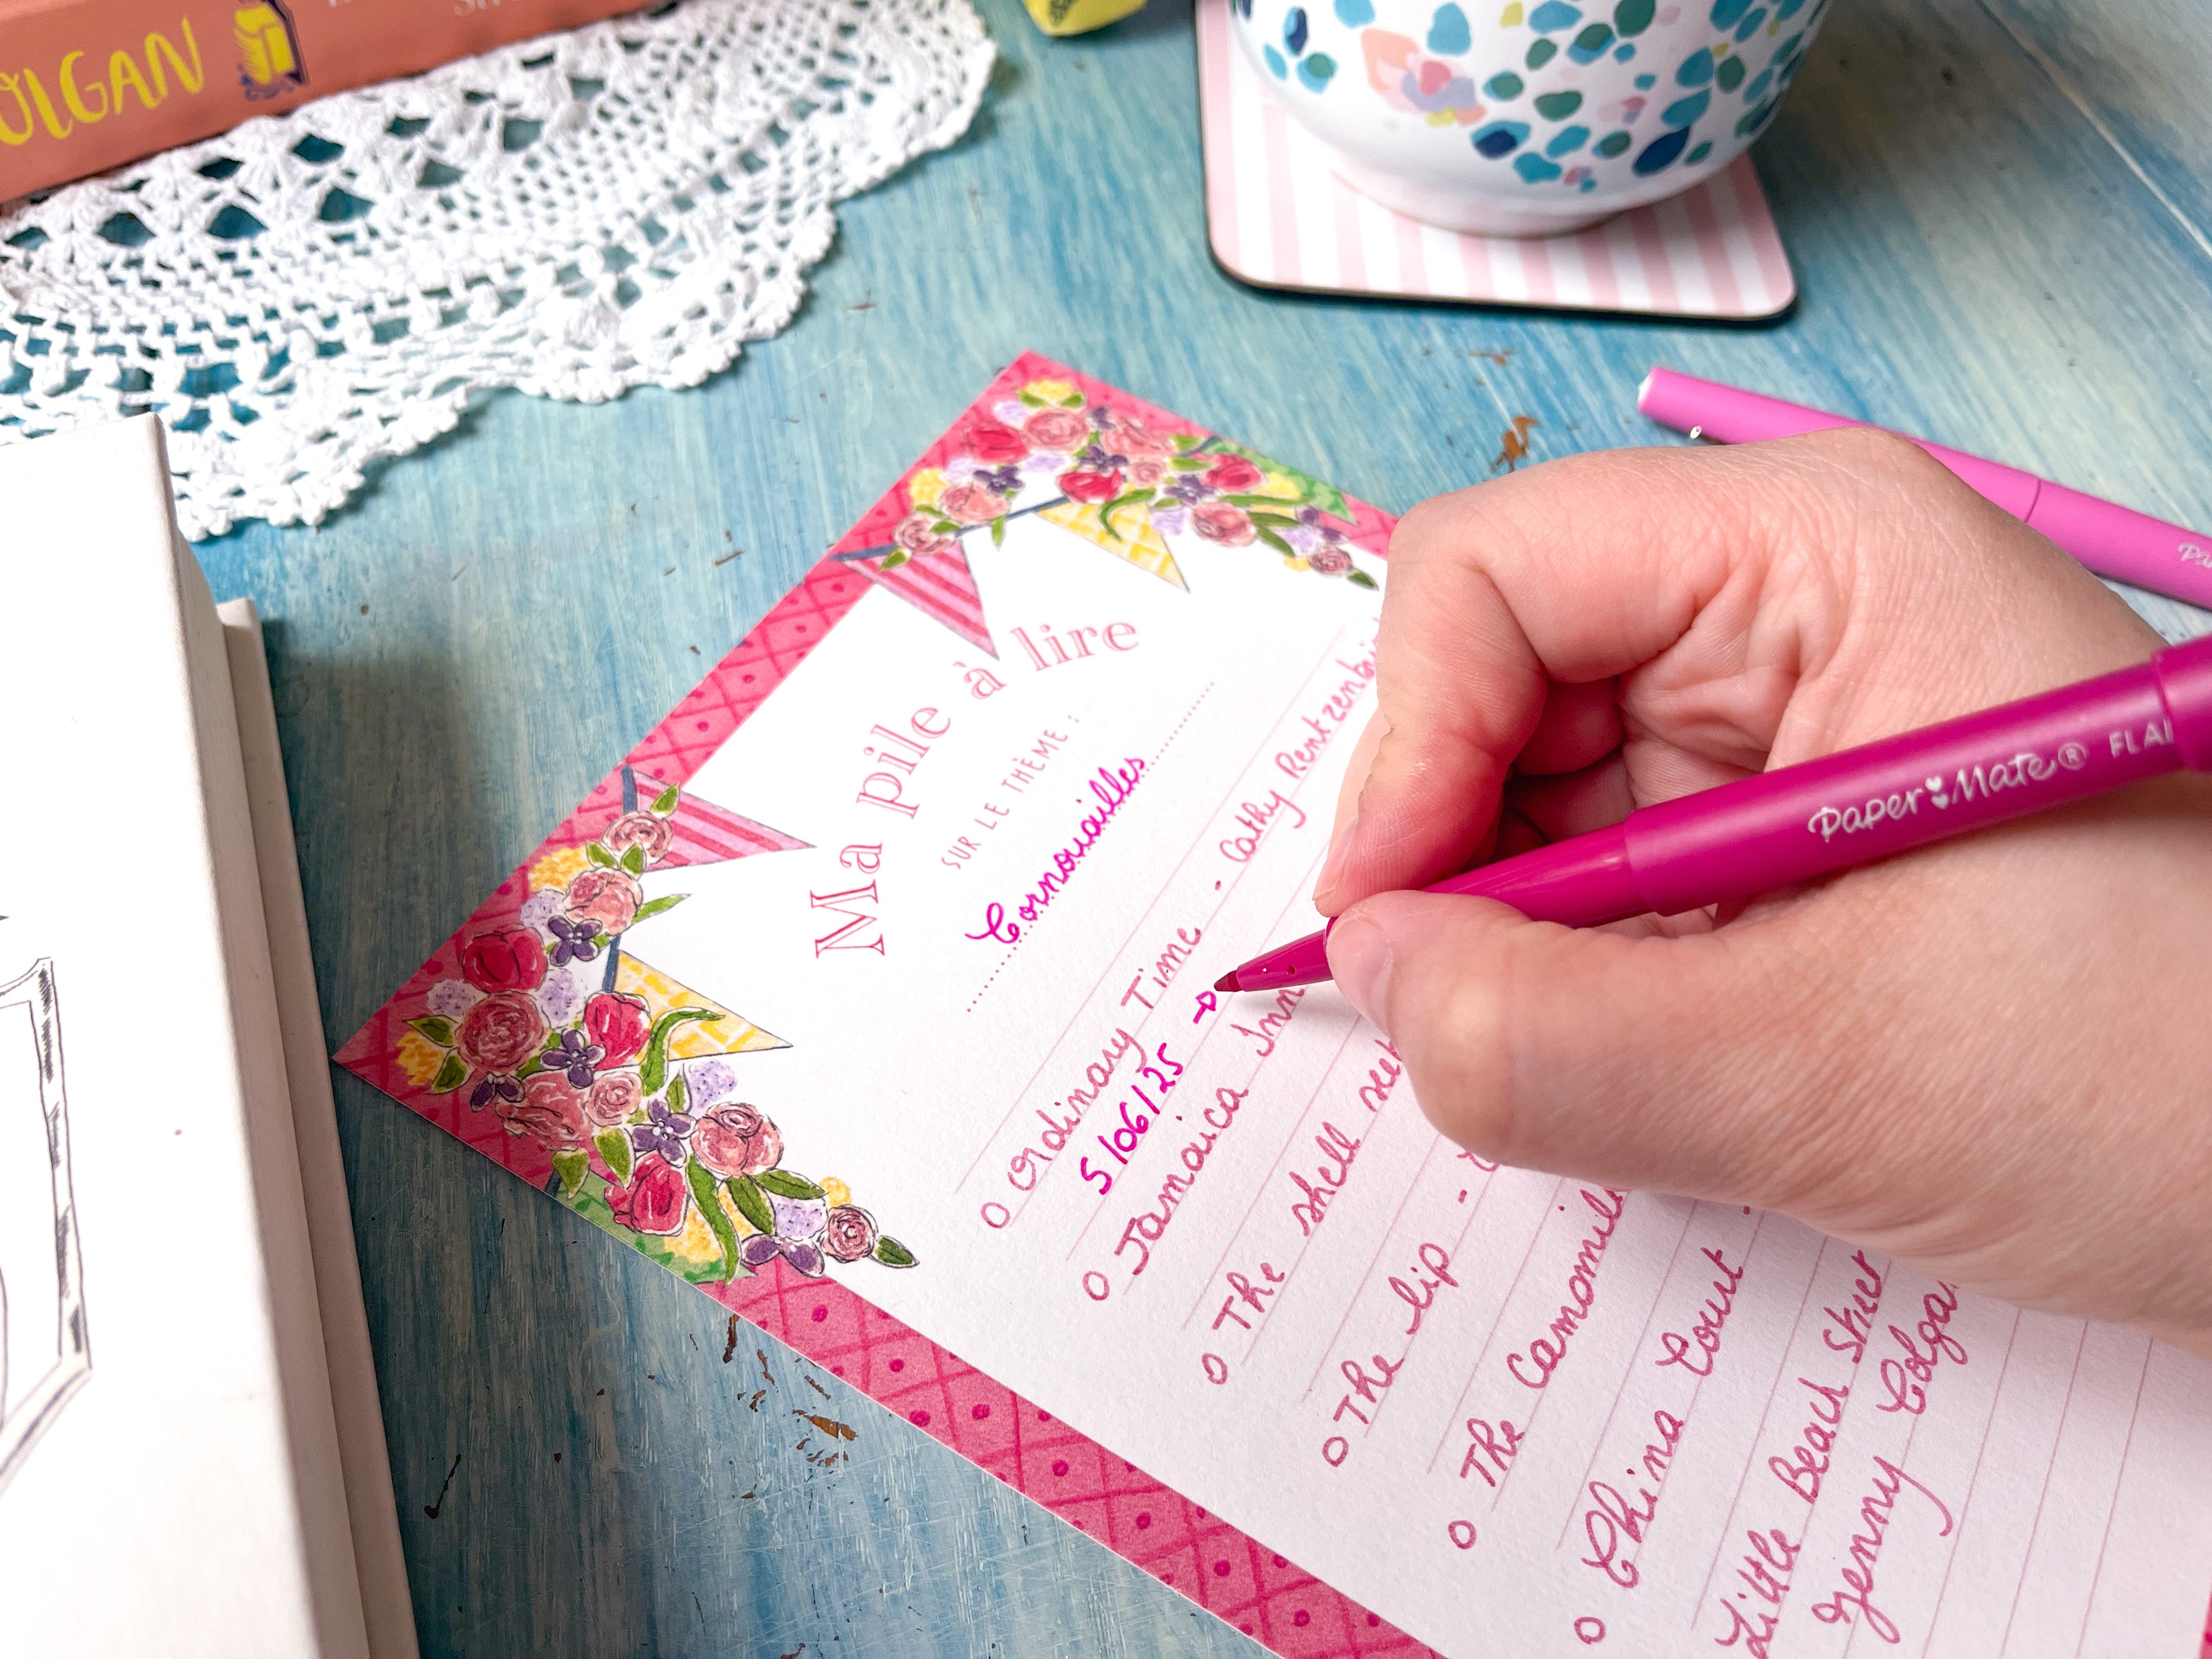 OLGAN
Ma pile à lire
SUR LE THÈME :
Cornouailles
Ordinary Time - Cathy Rentzenb
5/06/25 →
Jamaica Inn
The shell see
The lip -
The Camomil
China Court -
Little Beach Street
Jenny Colga
Paper Mate® FLAI
Pa